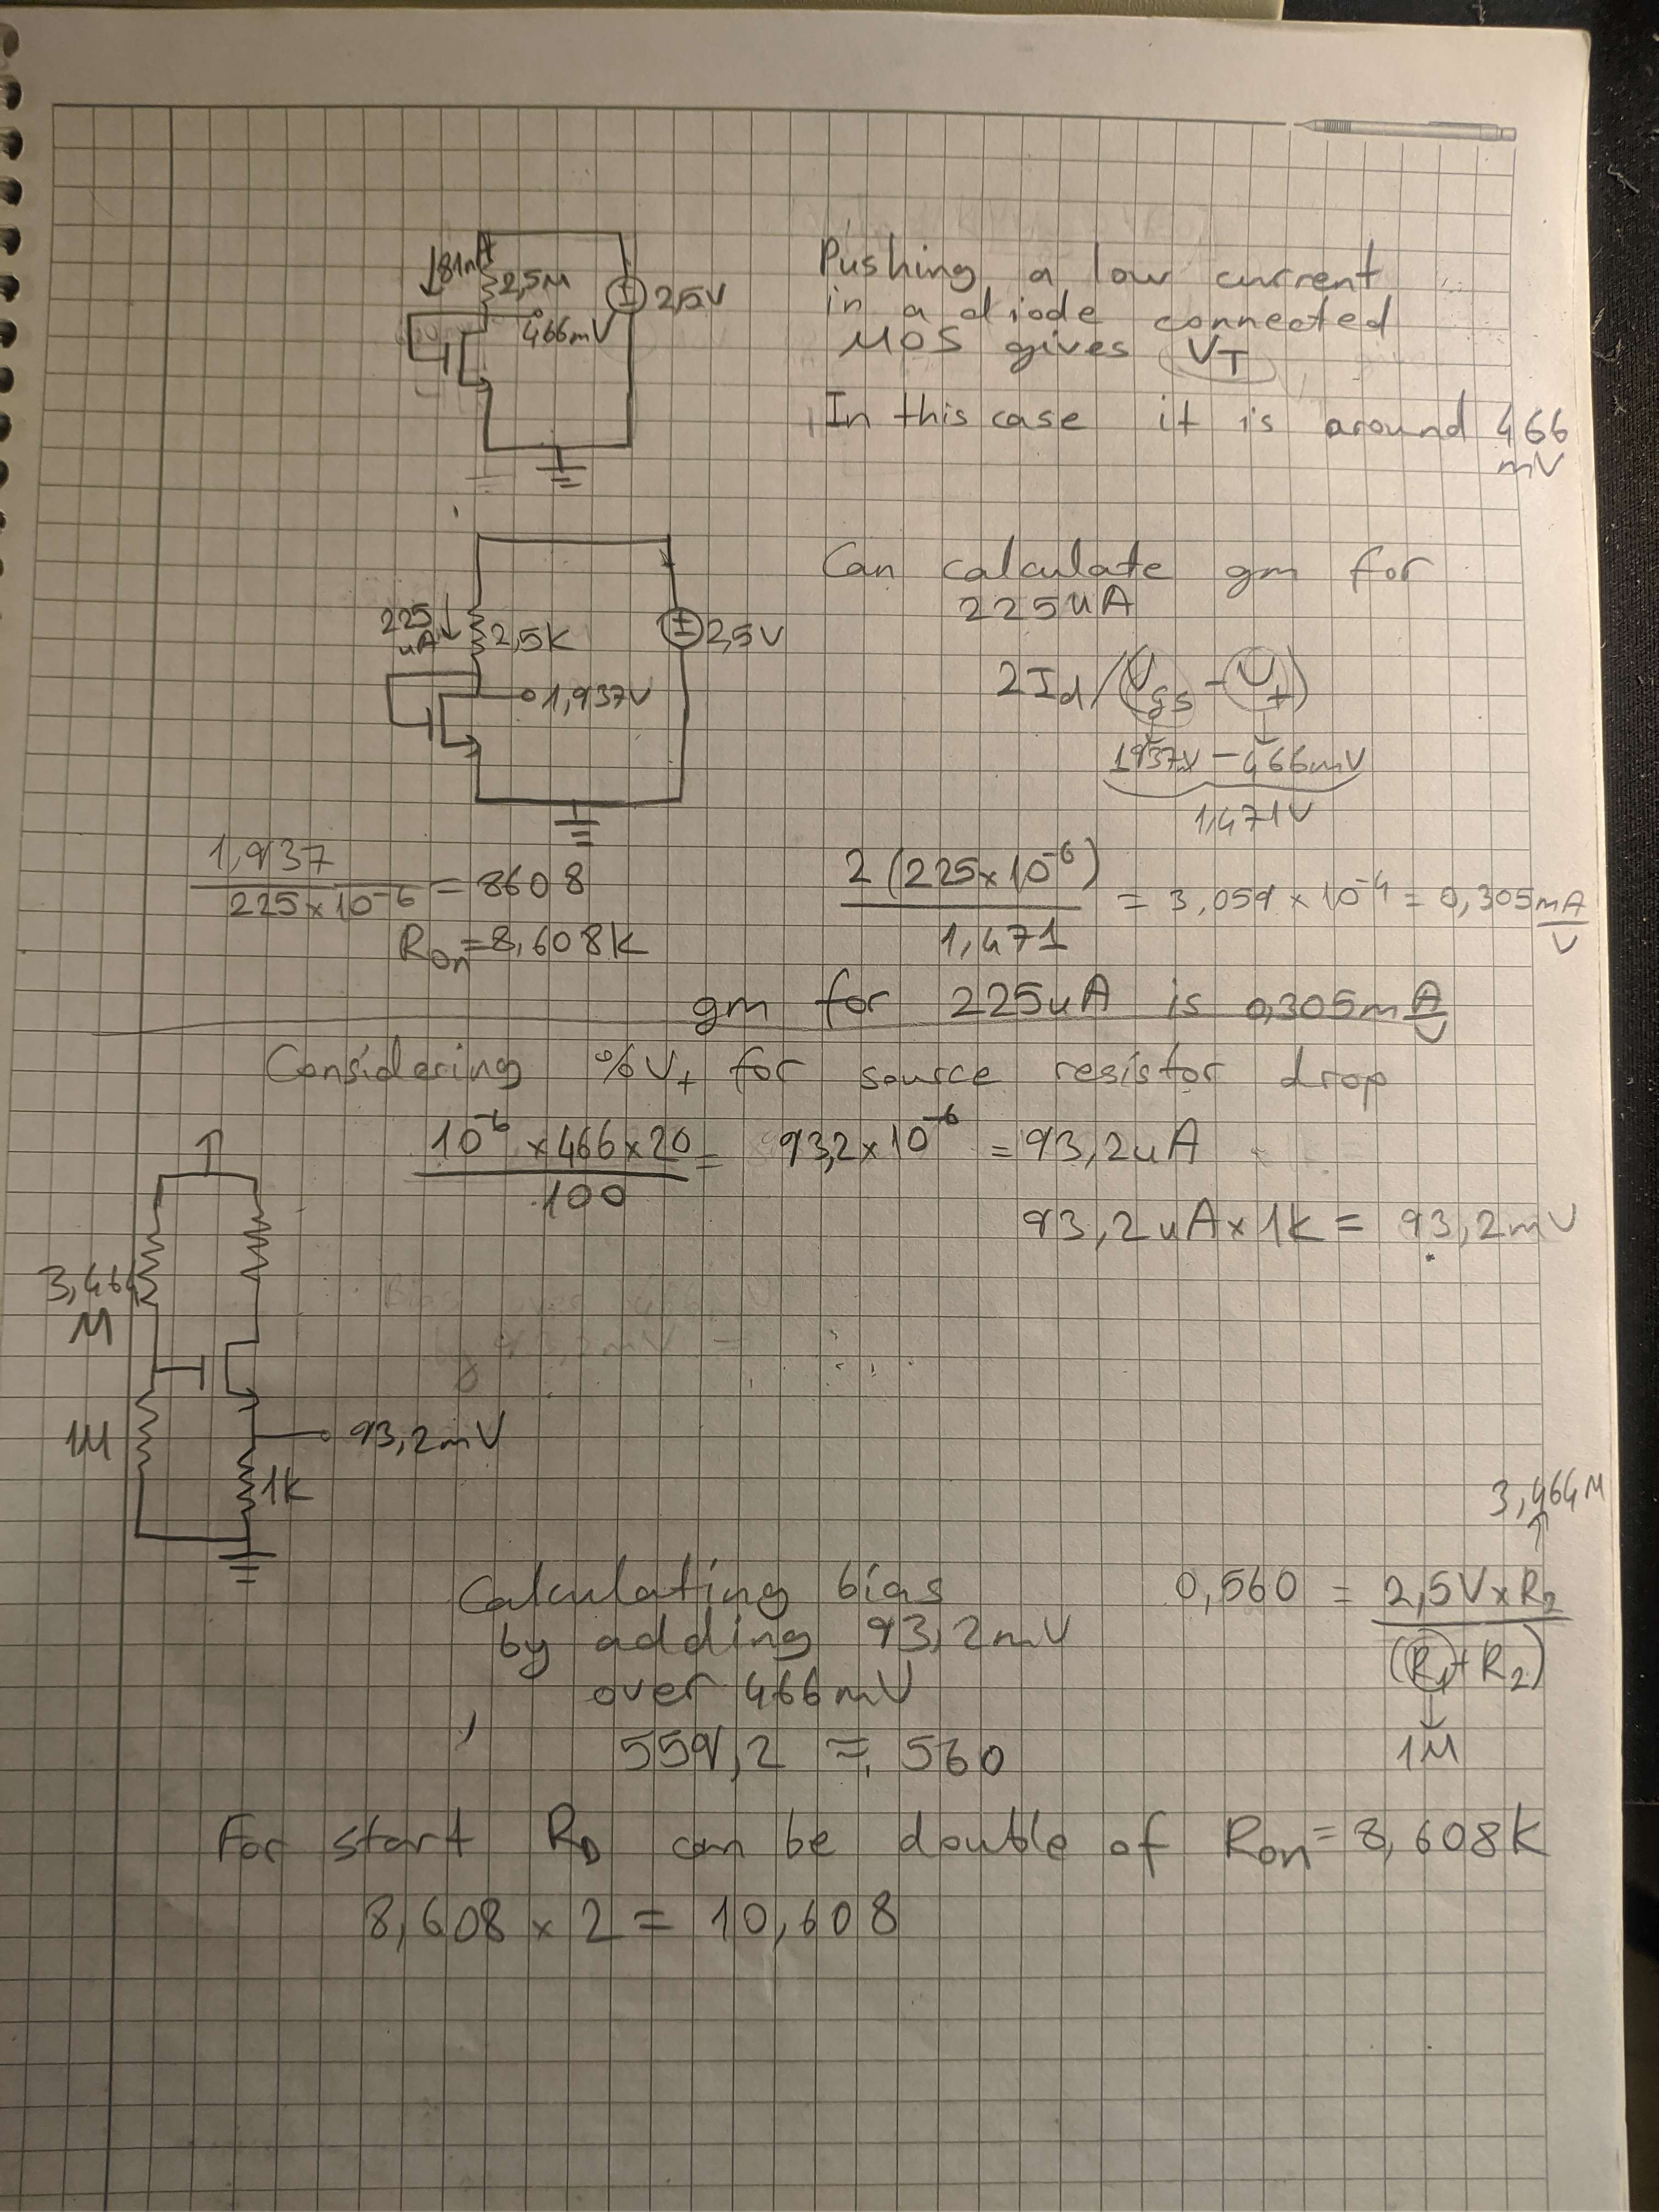 ↓81nA
2,5M
2,5V
466mV
Pushing a low current
in a diode connected
MOS gives VT
In this case it is around 466
mV
Can calculate gm for
225uA
225
uA↓
2,5K
2,5V
1,937V
2Id/(Vgs-Vt)
1937V-466mV
1,471V
1,937/225x10⁻⁶ = 8608
Ron=8,608K
2(225x10⁻⁶)/1,471 = 3,059x10⁻⁴ = 0,305mA/V
gm for 225uA is 0,305mA/V
Considering %Vt for source resistor drop
10⁻⁶x466x20/100 = 93,2x10⁻⁶ = 93,2uA
93,2uAx1k = 93,2mV
3,464
M
1M
93,2mV
1k
3,464M
Calculating bias
by adding 93,2mV
over 466mV
559,2 ≈ 560
0,560 = 2,5VxR2/(R1+R2)
1M
For start RD can be double of Ron=8,608K
8,608 x 2 = 10,608